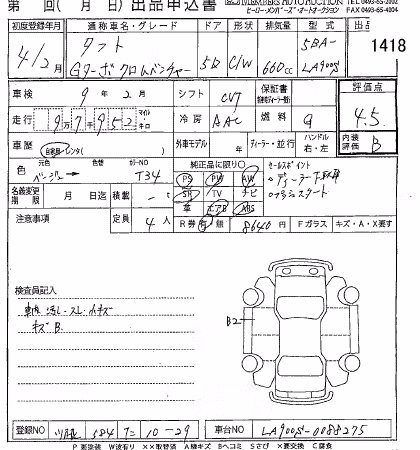 第 回( 月 日)出品申込書
MEMBERS AUTO AUCTION
ヒーローメンバーズ・オートオークション
FAX 0493-65-4004
初度登録年月 通称車名・グレード ドア 形状 排気量 型式 出品
4/2月 タフト Gターボ クロムベンチャー 5D C/W 660cc 5BA-LA900S 1418
車検 9年2月 シフト CVT 保証書 評価点 4.5
走行 97952 マイル キロ 冷房 AAC 燃料 G
車歴 自家用・レンタ( ) 外車モデル 年 ディーラー・並行 ハンドル 右・左 内装評価 B
色 元色 ベージュ 色替 カラーNO T34 純正品に限り○ セールスポイント
PS PW AW ・ディーラー下取車
名義変更期限 月 日迄 積載 t SR TV ナビ ・プッシュスタート
注意事項 定員 4人 革 エアB ABS
R券 有 無 8640円 Fガラス キズ・A・X要す
検査員記入
キズB.
B2
登録NO 584 10-29 車台NO LA900S-0088275
P 要塗装 W 波有り ××取替済 A 線キズ B ヘコミ S さび ×要交換 C 腐食